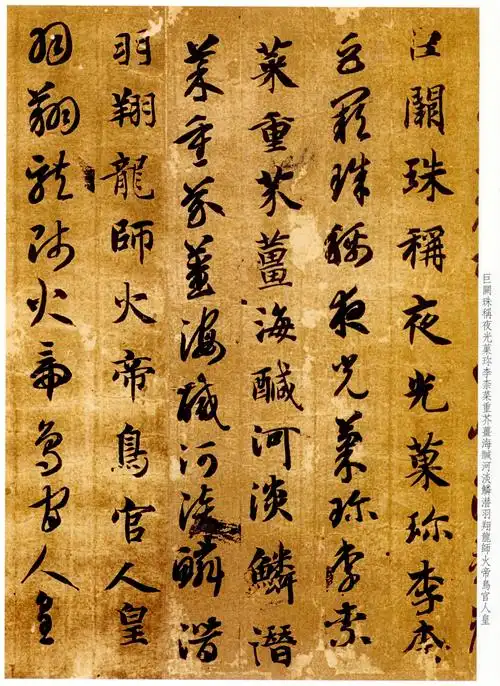 巨闕珠稱夜光菓珎李柰
巨闕珠稱夜光菓珎李柰
菜重芥薑海醎河淡鱗潛
菜重芥薑海醎河淡鱗潛
羽翔龍師火帝鳥官人皇
羽翔龍師火帝鳥官人皇
巨闕珠稱夜光菓珎李柰菜重芥薑海醎河淡鱗潜羽翔龍師火帝鳥官人皇